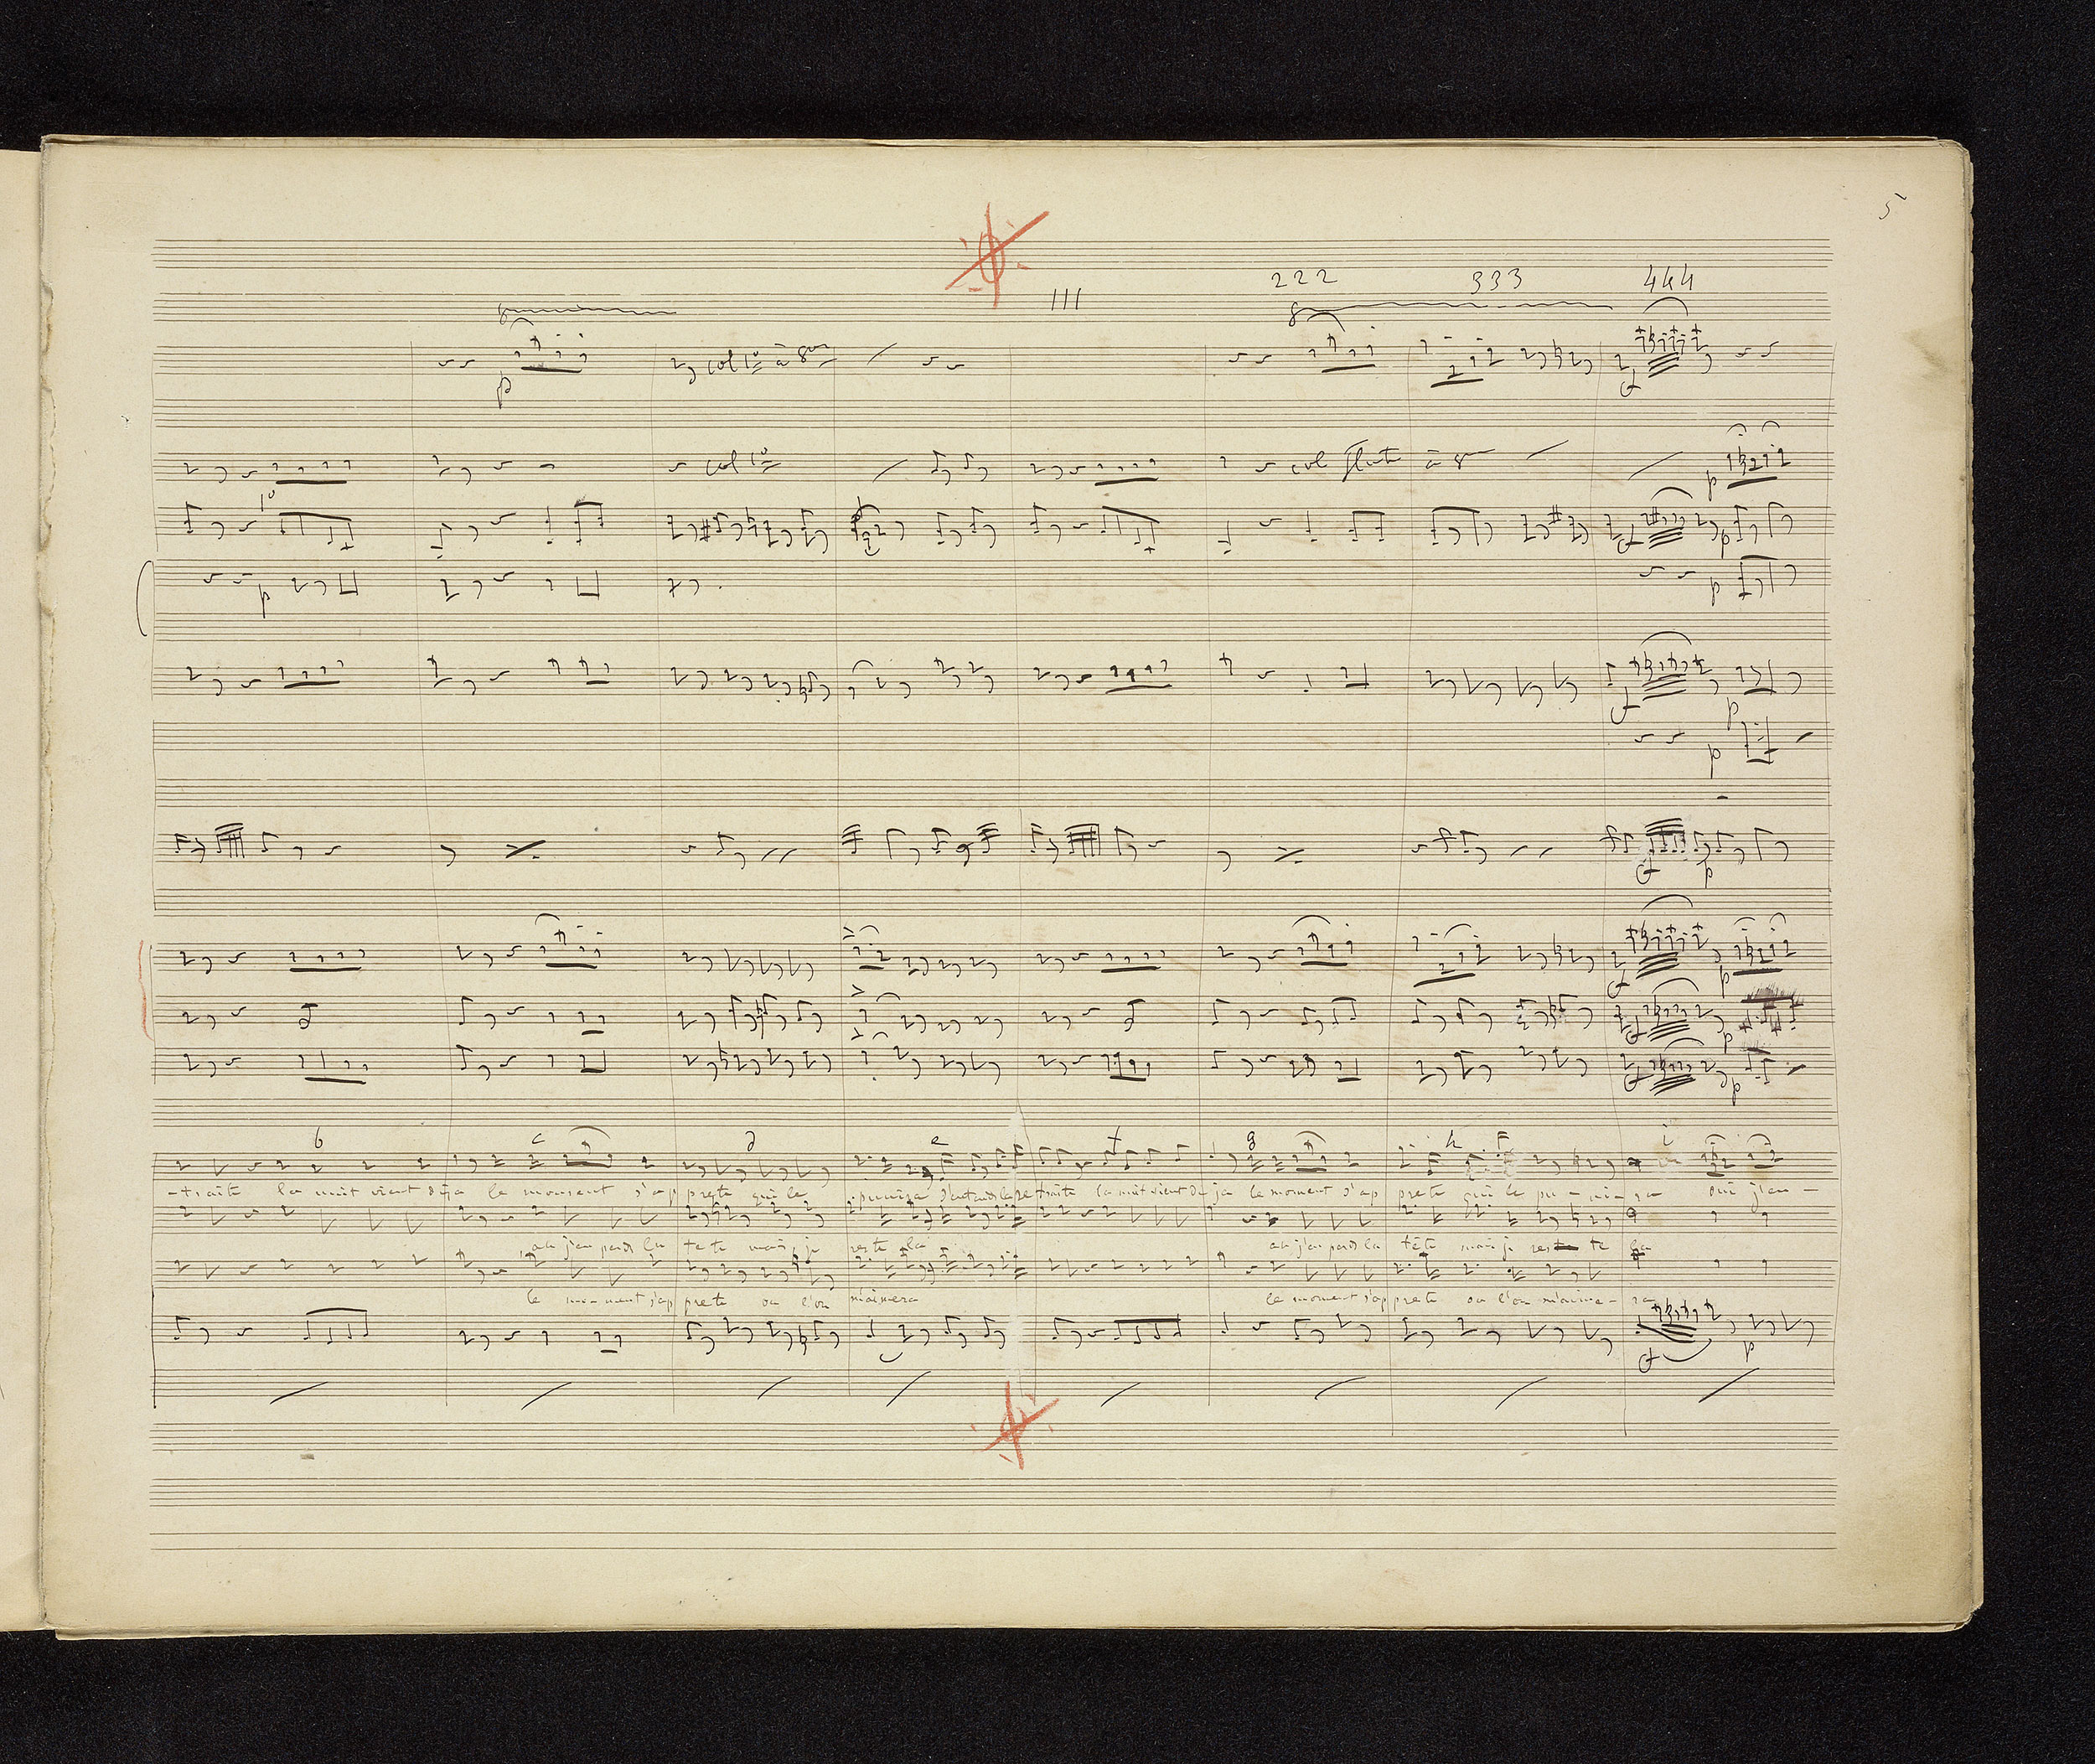 5
222 333 444
111
8
8
p
col 1º à 8va
f
col 1º
col flute à 8
p
1º
f p
p
p
f
p
p
f
p
f p
f
p
f
p
b c d e f g h i
-traite la nuit vient déja le moment s'ap prete qui le punira j'entends la retraite la nuit vient dé ja le moment s'ap prete qui le pu - ni - ra oui j'en -
ah j'en perds la tete mais je reste la ah j'en perds la tête mais je res te la
le mo-ment s'ap prete ou l'on m'aimera le moment s'ap prete ou l'on m'aime - ra
f p